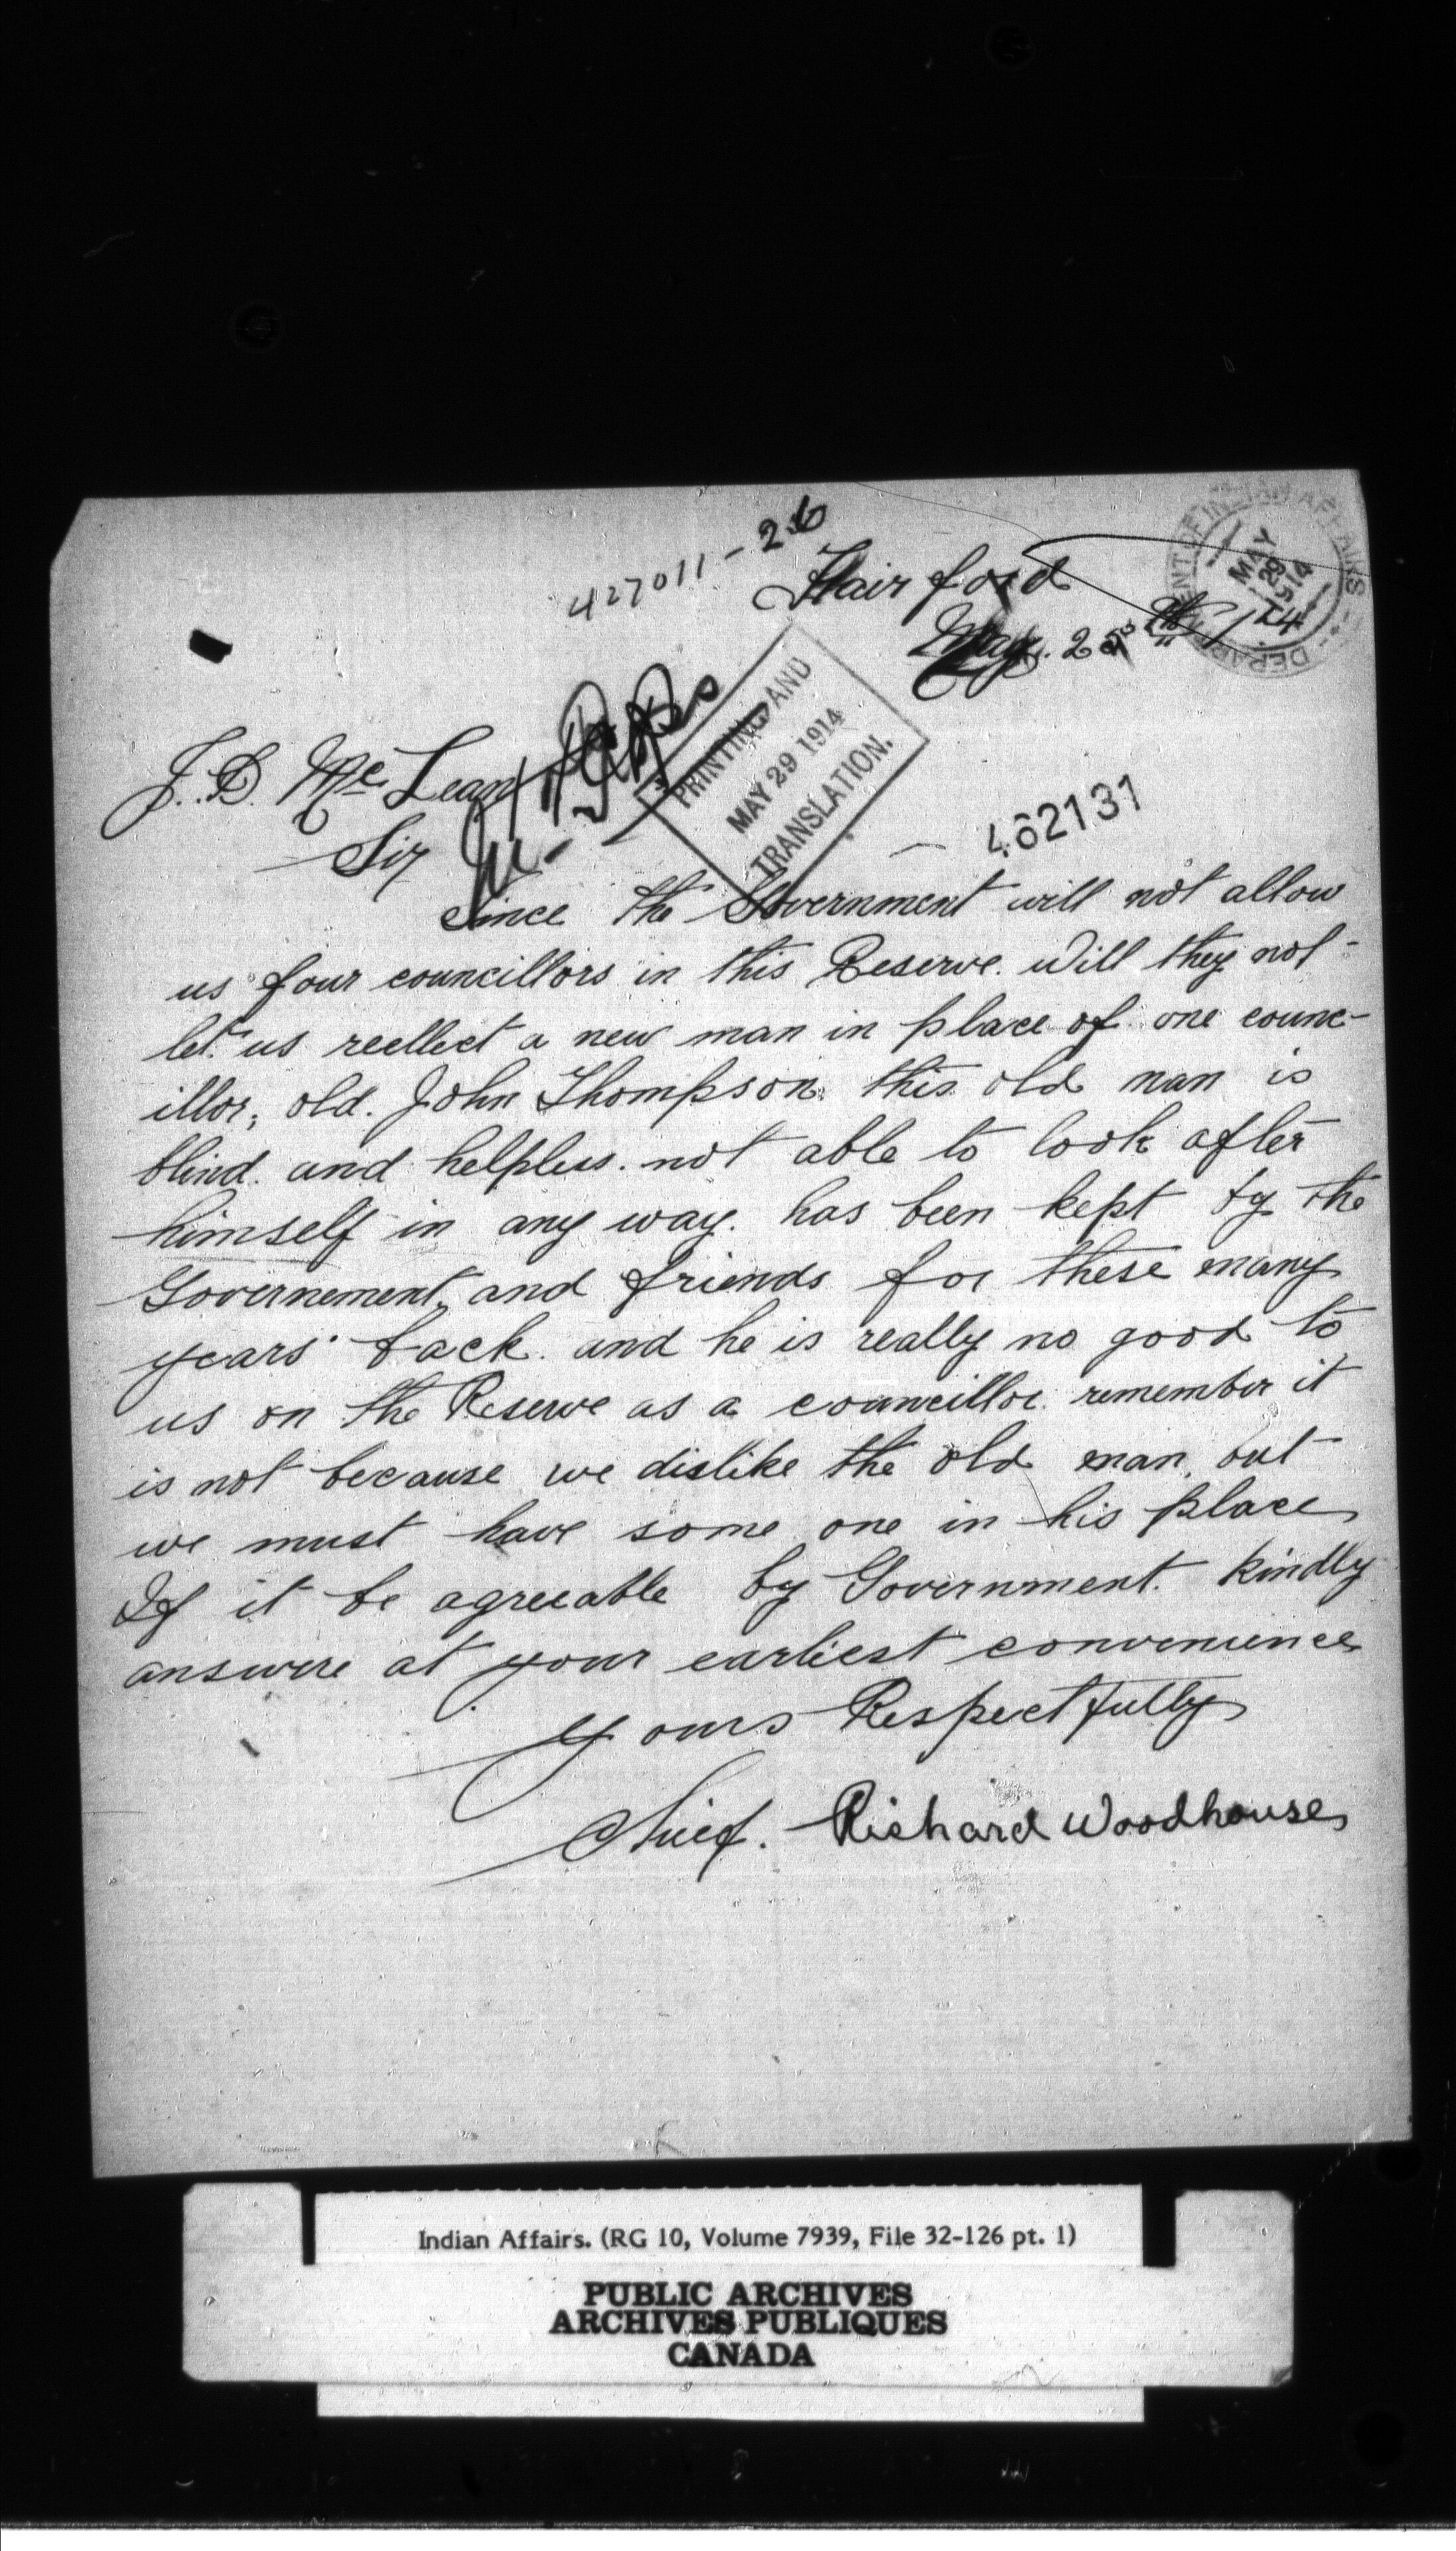 427011-26
Fairford
May. 2
DEPARTMENT OF INDIAN AFFAIRS
MAY
29
1914
J. D. McLean
PRINTING AND
MAY 29 1914
TRANSLATION.
Sir
462131
Since the Government will not allow
us four councillors in this Reserve. Will they not
let us reellect a new man in place of one counc-
illor, old. John Thompson. this old man is
blind. and helpless. not able to look after
himself in any way. has been kept by the
Governement, and friends for these many
years back. and he is really no good to
us on the Reserve as a councillor. remember it
is not because we dislike the old man, but
we must have some one in his place
If it be agreeable by Government. Kindly
answere at your earliest convenience
Yours Respectfully
Chief. Richard Woodhouse
Indian Affairs. (RG 10, Volume 7939, File 32-126 pt. 1)
PUBLIC ARCHIVES
ARCHIVES PUBLIQUES
CANADA